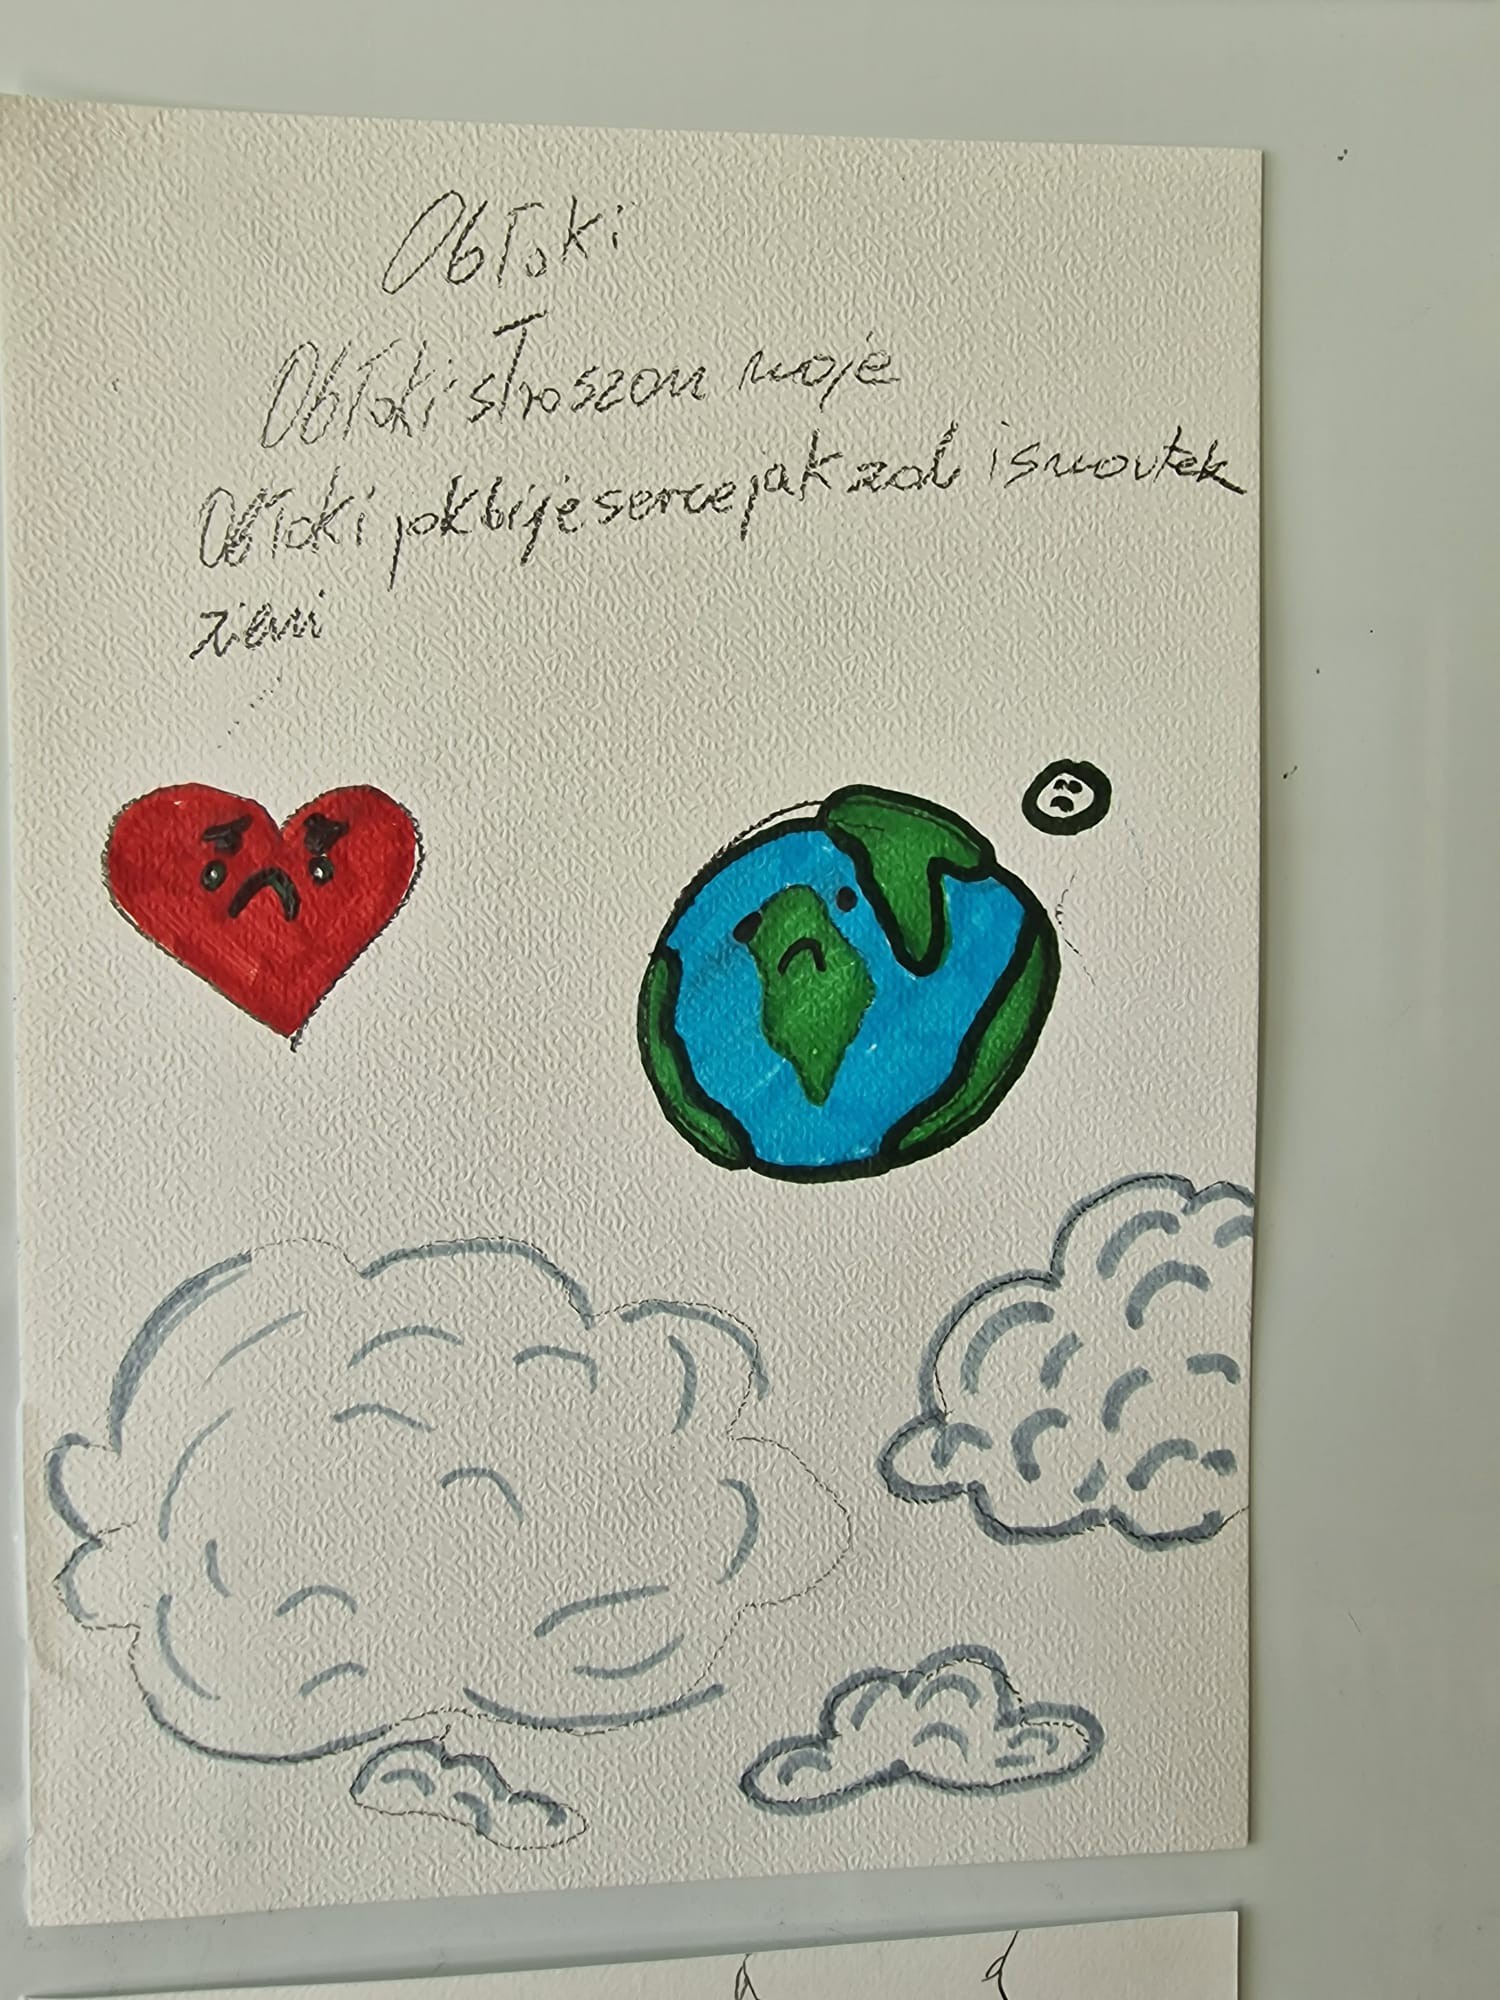 Obłoki
Obłoki straszon moje
Obłoki jak bije serce jak zal i smoutek
ziemi